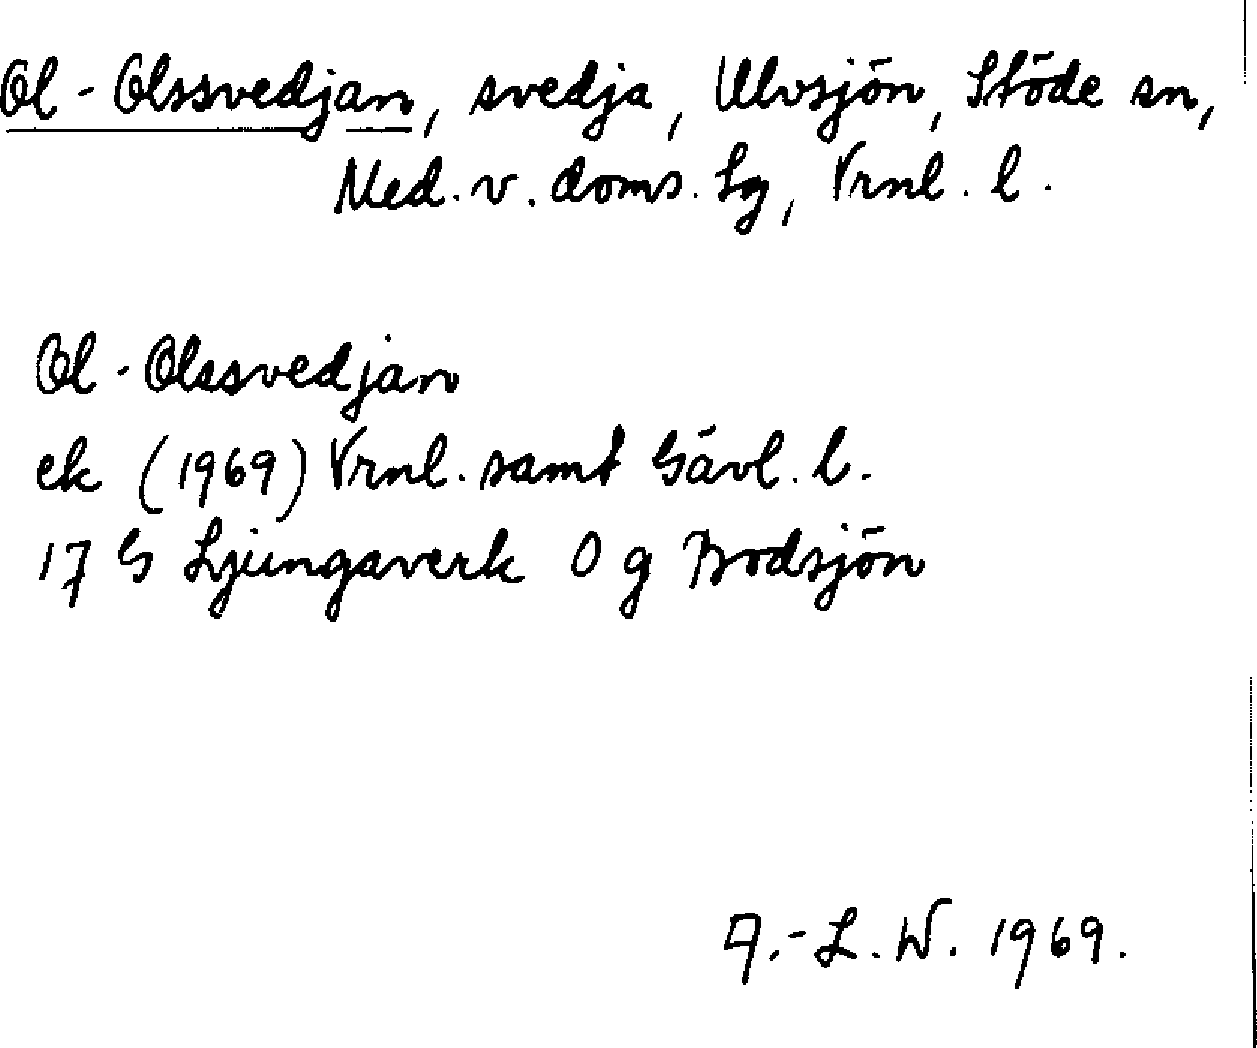 Ol-Olssvedjan, svedja, Ulvsjön, Stöde sn,
Med. v. doms. lg, Vrnl. l.
Ol-Olssvedjan
ek (1969) Vrnl. samt Gävl. l.
17 G Ljungaverk 0 g Bodsjön
A.-L. W. 1969.